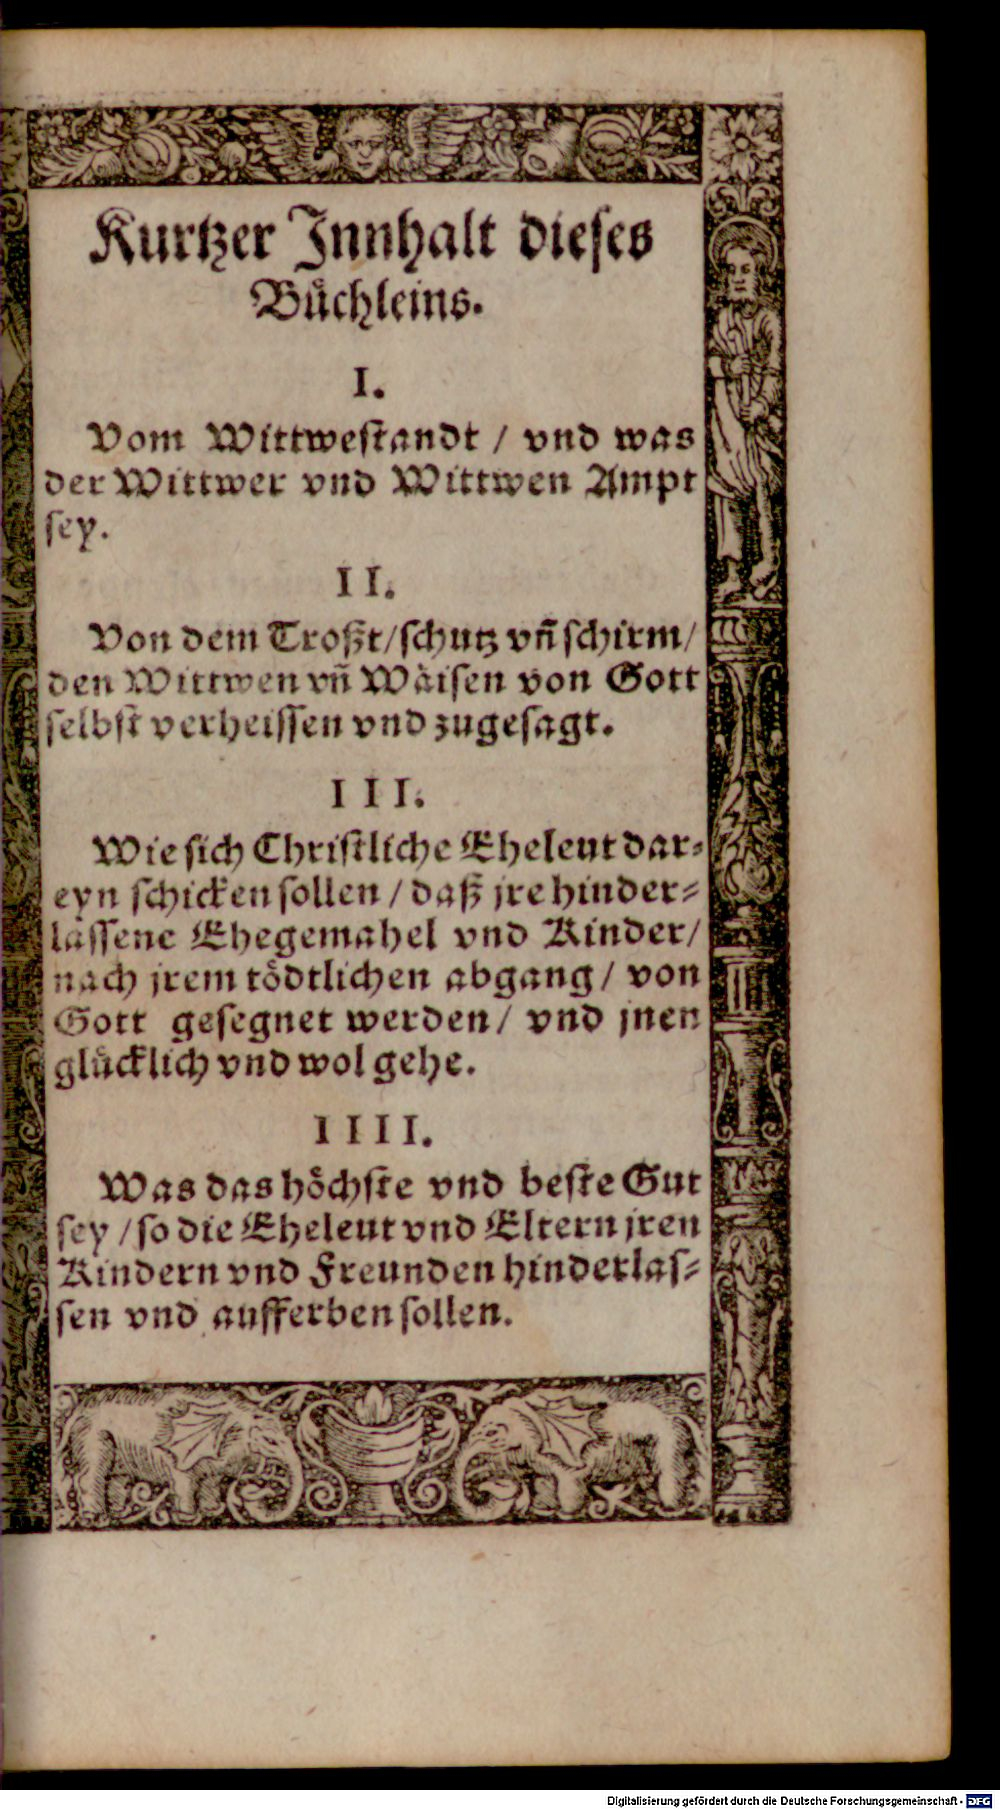 Kurtzer Innhalt dieses
Buͤchleins.
I.
Vom Wittweſtandt / vnd was
der Wittwer vnd Wittwen Ampt
ſey.
II.
Von dem Troßt/ſchutz vn̄ ſchirm/
den Wittwen vn̄ Waͤiſen von Gott
ſelbſt verheiſſen vnd zugeſagt.
III.
Wie ſich Chriſtliche Eheleut dar⸗
eyn ſchicken ſollen / daß jre hinder⸗
laſſene Ehegemahel vnd Kinder/
nach jrem toͤdtlichen abgang / von
Gott geſegnet werden / vnd jnen
gluͤcklich vnd wol gehe.
IIII.
Was das hoͤchſte vnd beſte Gut
ſey / ſo die Eheleut vnd Eltern jren
Kindern vnd Freunden hinderlaſ⸗
ſen vnd aufferben ſollen.
Digitalisierung gefördert durch die Deutsche Forschungsgemeinschaft - DFG